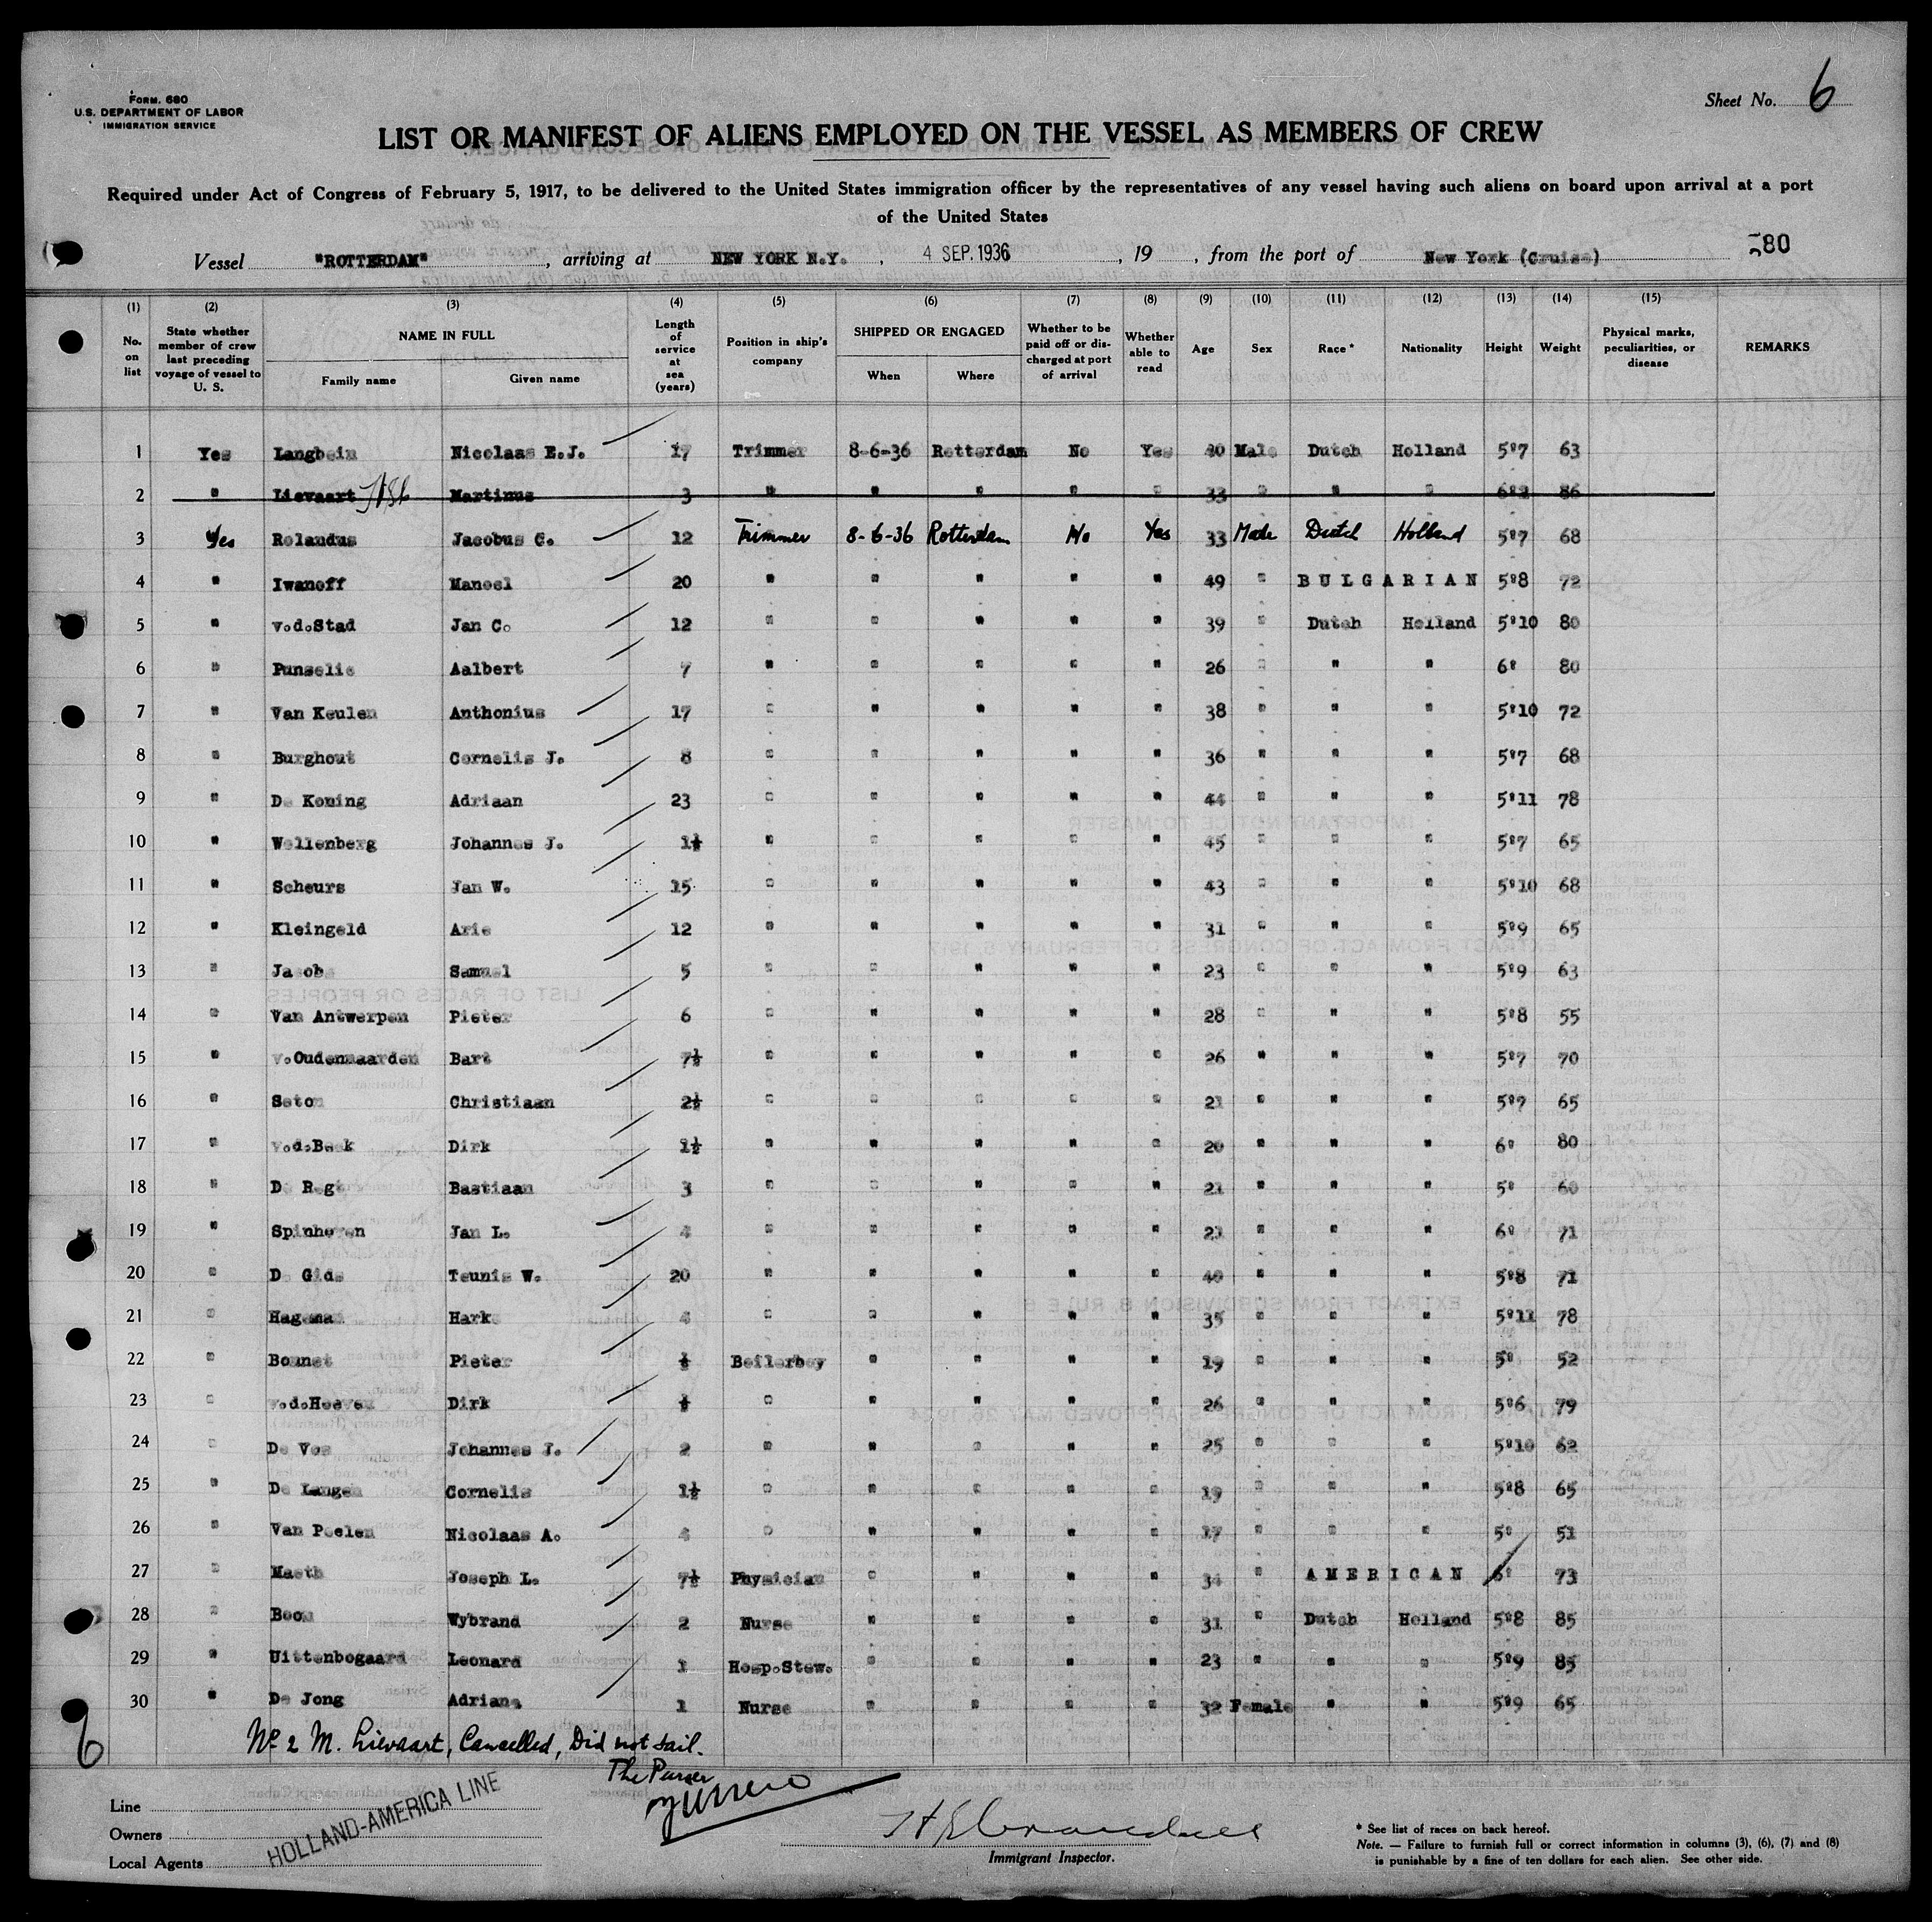 FORM. 680
U.S. DEPARTMENT OF LABOR
IMMIGRATION SERVICE
Sheet No. 6
LIST OR MANIFEST OF ALIENS EMPLOYED ON THE VESSEL AS MEMBERS OF CREW
Required under Act of Congress of February 5, 1917, to be delivered to the United States immigration officer by the representatives of any vessel having such aliens on board upon arrival at a port
of the United States
Vessel "ROTTERDAM", arriving at NEW YORK N.Y., 4 SEP. 1936, 19 , from the port of New York (Cruise) 580
(1) (2) (3) (4) (5) (6) (7) (8) (9) (10) (11) (12) (13) (14) (15)
No. on list State whether member of crew last preceding voyage of vessel to U. S. NAME IN FULL Family name Given name Length of service at sea (years) Position in ship's company SHIPPED OR ENGAGED When Where Whether to be paid off or discharged at port of arrival Whether able to read Age Sex Race * Nationality Height Weight Physical marks, peculiarities, or disease REMARKS
1 Yes Langbein Nicolaas E.J. 17 Trimmer 8-6-36 Rotterdam No Yes 40 Male Dutch Holland 5'7 63
2 " Lievaart Martinus 3 " " " " " 33 " " " 6'2 86
3 Yes Rolandus Jacobus C. 12 Trimmer 8-6-36 Rotterdam No Yes 33 Male Dutch Holland 5'7 68
4 " Iwanoff Manoel 20 " " " " " 49 " BULGARIAN 5'8 72
5 " v.d.Stad Jan C. 12 " " " " " 39 " Dutch Holland 5'10 80
6 " Punselie Aalbert 7 " " " " " 26 " " " 6' 80
7 " Van Keulen Anthonius 17 " " " " " 38 " " " 5'10 72
8 " Burghout Cornelis J. 8 " " " " " 36 " " " 5'7 68
9 " De Koning Adriaan 23 " " " " " 44 " " " 5'11 78
10 " Wellenberg Johannes J. 1½ " " " " " 45 " " " 5'7 65
11 " Scheurs Jan W. 15 " " " " " 43 " " " 5'10 68
12 " Kleingeld Arie 12 " " " " " 31 " " " 5'9 65
13 " Jacobs Samuel 5 " " " " " 23 " " " 5'9 63
14 " Van Antwerpen Pieter 6 " " " " " 28 " " " 5'8 55
15 " v.Oudenmaarden Bart 7½ " " " " " 26 " " " 5'7 70
16 " Seton Christiaan 2½ " " " " " 21 " " " 5'7 65
17 " v.d.Beek Dirk 1½ " " " " " 20 " " " 6' 80
18 " De Regt Bastiaan 3 " " " " " 21 " " " 5' 60
19 " Spinhoven Jan L. 4 " " " " " 21 " " " 6' 71
20 " De Gids Teunis W. 20 " " " " " 40 " " " 5'8 71
21 " Hageman Hark 4 " " " " " 35 " " " 5'11 78
22 " Bonnet Pieter ½ Boilerboy " " " " 19 " " " 5' 52
23 " v.d.Hoeven Dirk ½ " " " " " 26 " " " 5'6 79
24 " De Vos Johannes J. 2 " " " " " 25 " " " 5'10 62
25 " De Langen Cornelis 1½ " " " " " 19 " " " 5'8 65
26 " Van Poelen Nicolaas A. 4 " " " " " 17 " " " 5' 51
27 " Maeth Joseph L. 7½ Physician " " " " 34 " AMERICAN 6' 73
28 " Boon Wybrand 2 Nurse " " " " 31 " Dutch Holland 5'8 85
29 " Uittenbogaard Leonard 1 Hosp.Stew. " " " " 23 " " " 5'9 85
30 " De Jong Adriana 1 Nurse " " " " 32 Female " " 5'9 65
6
No 2 M. Lievaart, Cancelled, Did not sail.
The Purser
Line
Owners
Local Agents
HOLLAND-AMERICA LINE
Immigrant Inspector.
* See list of races on back hereof.
Note. — Failure to furnish full or correct information in columns (3), (6), (7) and (8)
is punishable by a fine of ten dollars for each alien. See other side.